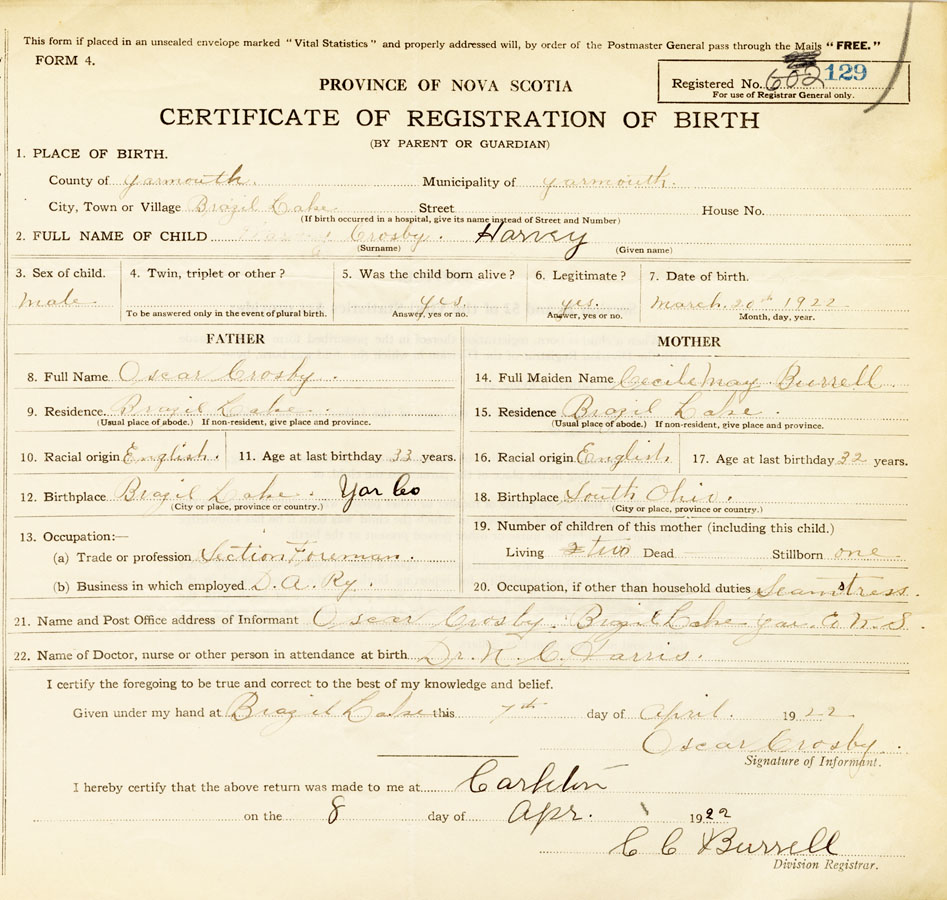 This form if placed in an unsealed envelope marked "Vital Statistics" and properly addressed will, by order of the Postmaster General pass through the Mails "FREE."
FORM 4.
PROVINCE OF NOVA SCOTIA
Registered No. 602 129
For use of Registrar General only.
CERTIFICATE OF REGISTRATION OF BIRTH
(BY PARENT OR GUARDIAN)
1. PLACE OF BIRTH.
County of Yarmouth. Municipality of Yarmouth.
City, Town or Village Brazil Lake Street House No.
(If birth occurred in a hospital, give its name instead of Street and Number)
2. FULL NAME OF CHILD Crosby. Harvey
(Surname) (Given name)
3. Sex of child. 4. Twin, triplet or other? 5. Was the child born alive? 6. Legitimate? 7. Date of birth.
Male yes. yes. March. 20th 1922
To be answered only in the event of plural birth. Answer, yes or no. Answer, yes or no. Month, day, year.
FATHER MOTHER
8. Full Name Oscar Crosby. 14. Full Maiden Name Cecile May Burrell
9. Residence. Brazil Lake. 15. Residence Brazil Lake.
(Usual place of abode.) If non-resident, give place and province. (Usual place of abode.) If non-resident, give place and province.
10. Racial origin English. 11. Age at last birthday 33 years. 16. Racial origin English. 17. Age at last birthday 32 years.
12. Birthplace Brazil Lake. Yar Co 18. Birthplace South Ohio.
(City or place, province or country.) (City or place, province or country.)
13. Occupation:— 19. Number of children of this mother (including this child.)
(a) Trade or profession Section Foreman. Living two Dead Stillborn one
(b) Business in which employed D. A. Ry. 20. Occupation, if other than household duties Seamstress.
21. Name and Post Office address of Informant Oscar Crosby. Brazil Lake Yar. Co N. S.
22. Name of Doctor, nurse or other person in attendance at birth Dr. Harris.
I certify the foregoing to be true and correct to the best of my knowledge and belief.
Given under my hand at Brazil Lake this 7th day of April. 1922
Oscar Crosby.
Signature of Informant.
I hereby certify that the above return was made to me at Carleton
on the 8 day of Apr. 1922
C C Burrell
Division Registrar.